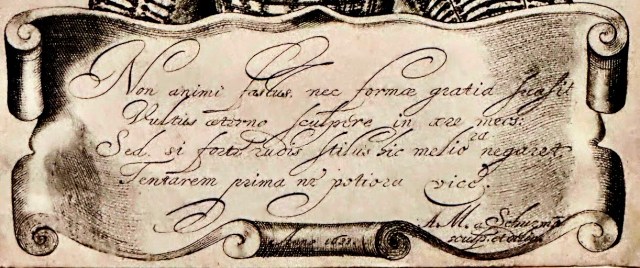 Non animi fastus, nec formæ gratia suasit
Vultus æterno sculpere in ære meos:
Sed, si forte rudis stilus hic meliora negaret,
Tentarem prima ne potiora vice.
A. M. à Schurman
sculps. et delin.
Anno 1633.